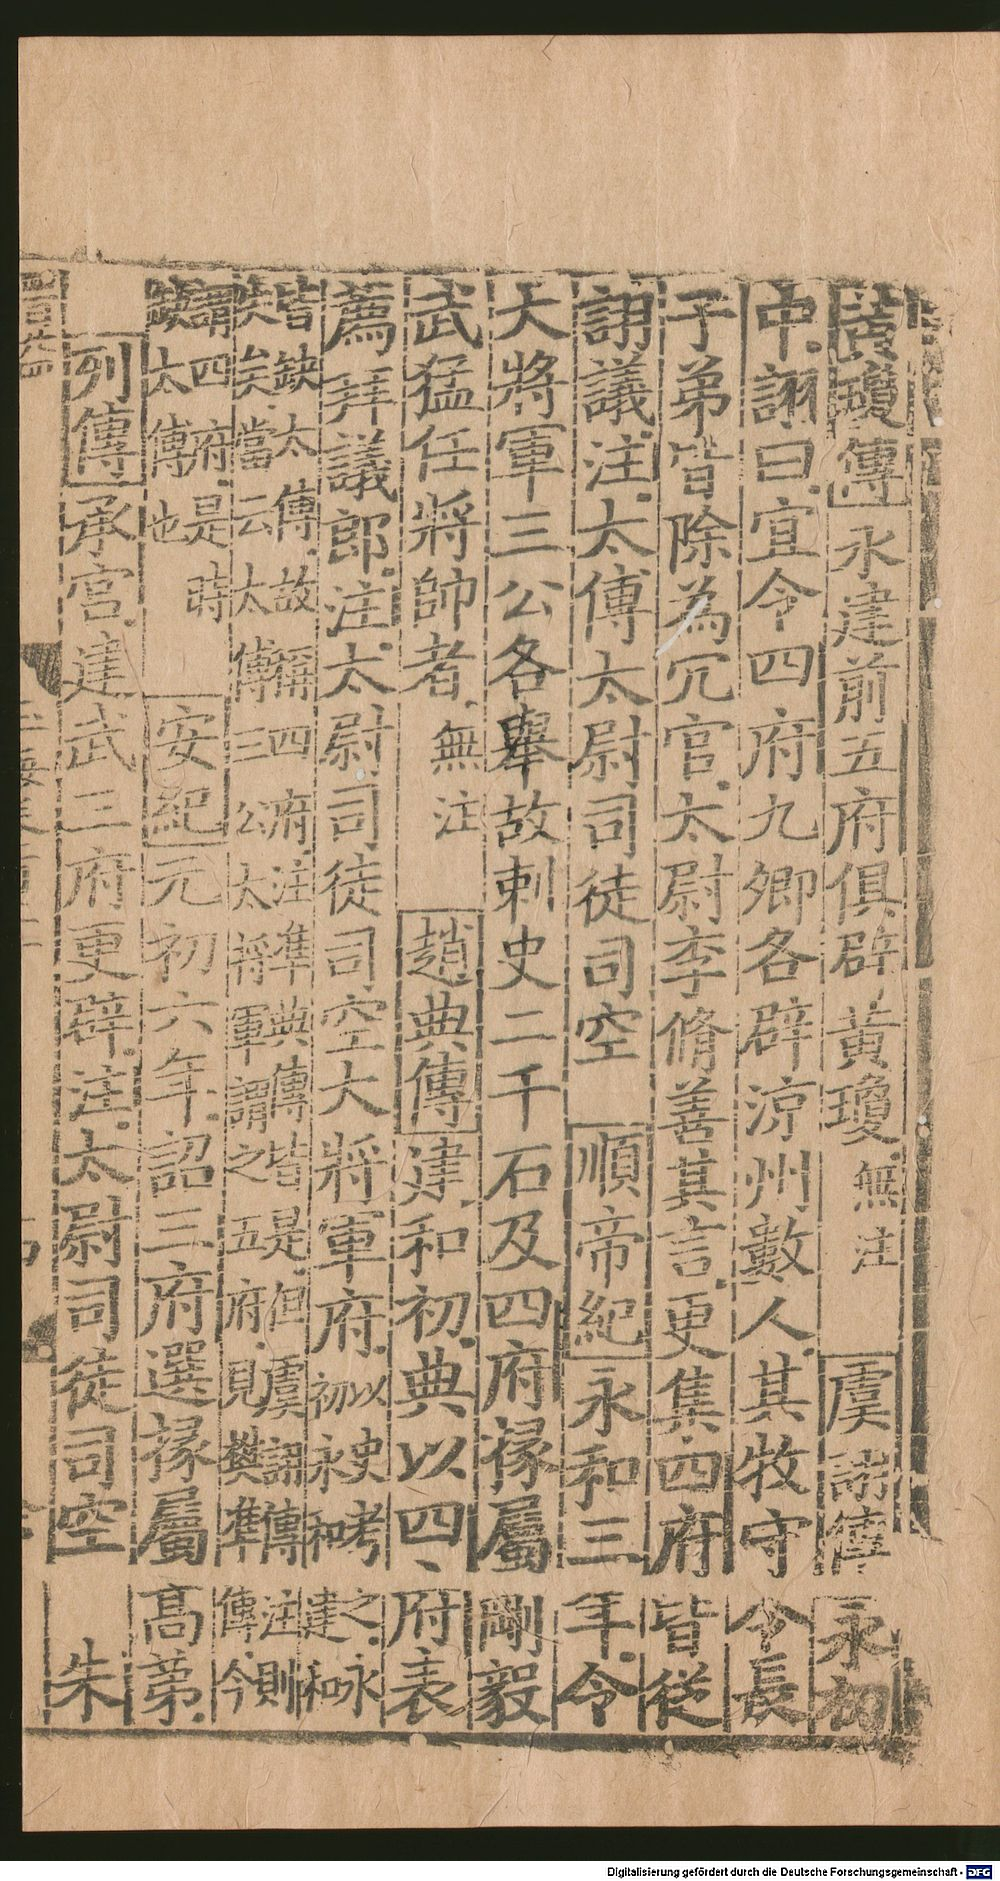 黃瓊傳永建前五府俱辟黃瓊無注 虞詡傳永初
中詡曰宜令四府九卿各辟涼州數人其牧守令長
子弟皆除為冗官太尉李脩善其言更集四府皆從
詡議注太傅太尉司徒司空 順帝紀永和三年令
大將軍三公各舉故刺史二千石及四府掾屬剛毅
武猛任將帥者無注 趙典傳建和初典以四府表
薦拜議郎注太尉司徒司空大將軍府以史考之永初永和建和
皆缺太傅故稱四府注隼典傳皆是但虞詡傳注則失矣當云太傅三公大將軍謂之五府見樊準傳今
謂四府是時缺太傅也 安紀元初六年詔三府選掾屬高第
列傳承宮建武三府更辟注太尉司徒司空 朱
Digitalisierung gefördert durch die Deutsche Forschungsgemeinschaft - DFG